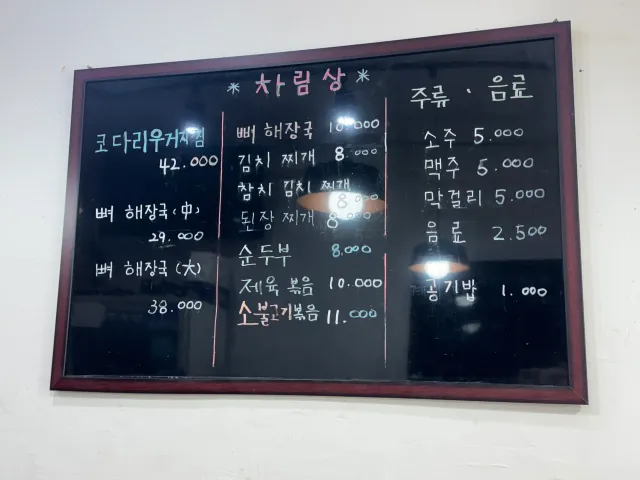 * 차림상 *
코다리우거지찜
42.000
뼈 해장국(中)
29.000
뼈 해장국(大)
38.000
뼈 해장국 10.000
김치 찌개 8.000
참치 김치 찌개
8.000
된장 찌개 8.000
순두부 8.000
제육 볶음 10.000
소불고기볶음 11.000
주류 · 음료
소주 5.000
맥주 5.000
막걸리 5.000
음료 2.500
공기밥 1.000